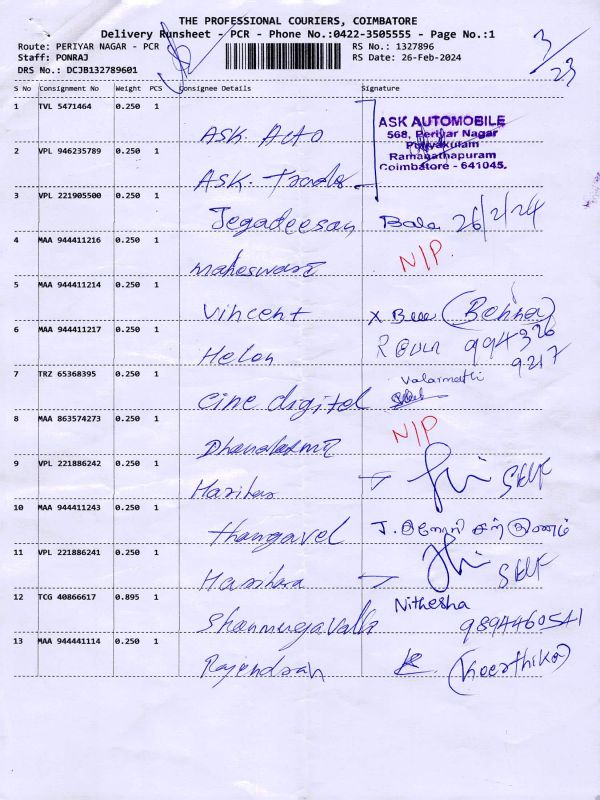 THE PROFESSIONAL COURIERS, COIMBATORE
Delivery Runsheet - PCR - Phone No.:0422-3505555 - Page No.:1
Route: PERIYAR NAGAR - PCR
RS No.: 1327896
Staff: PONRAJ
RS Date: 26-Feb-2024
DRS No.: DCJB132789601
3/23
S No Consignment No Weight PCS Consignee Details Signature
1 TVL 5471464 0.250 1 ASK. Auto
ASK AUTOMOBILE
568, Periyar Nagar
Puliyakulam
Ramanathapuram
Coimbatore - 641045.
2 VPL 946235789 0.250 1 ASK. Trade
3 VPL 221905500 0.250 1 Jegadeesan Bala 26/2/24
4 MAA 944411216 0.250 1 maheswari N/P.
5 MAA 944411214 0.250 1 Vincent
6 MAA 944411217 0.250 1 Helen 994326
9217
7 TRZ 65368395 0.250 1 Cine digital Valarmathi
8 MAA 863574273 0.250 1 Dhanalaxmi N/P
9 VPL 221886242 0.250 1 Harihara SELF
10 MAA 944411243 0.250 1 thangavel
11 VPL 221886241 0.250 1 Harihara SELF
12 TCG 40866617 0.895 1 Shanmugavalli Nithesha
9894460541
13 MAA 944441114 0.250 1 Rajendran (Keerthika)